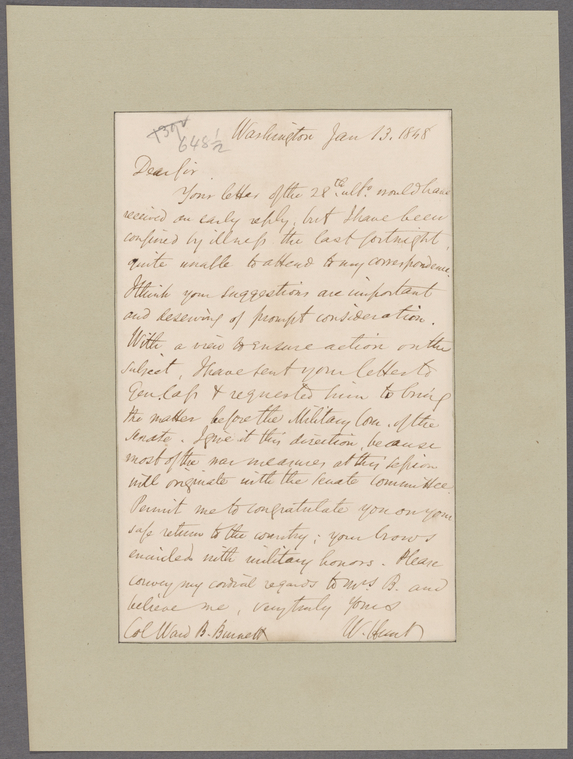 648 1/2
Washington Jan 13. 1848
Dear Sir
Your letter of the 28th ulto. would have
received an early reply, but I have been
confined by illness the last fortnight,
quite unable to attend to my correspondence.
I think your suggestions are important
and deserving of prompt consideration.
With a view to ensure action on the
subject, I have sent your letter to
Gen. Cass & requested him to bring
the matter before the Military Com. of the
Senate. I give it this direction, because
most of the war measures, at this session
will originate with the Senate committee.
Permit me to congratulate you on your
safe return to the country; your brows
encircled with military honors. Please
convey my cordial regards to Mrs. B. and
believe me, very truly Yours
Col Ward B. Burnett W. Hunt